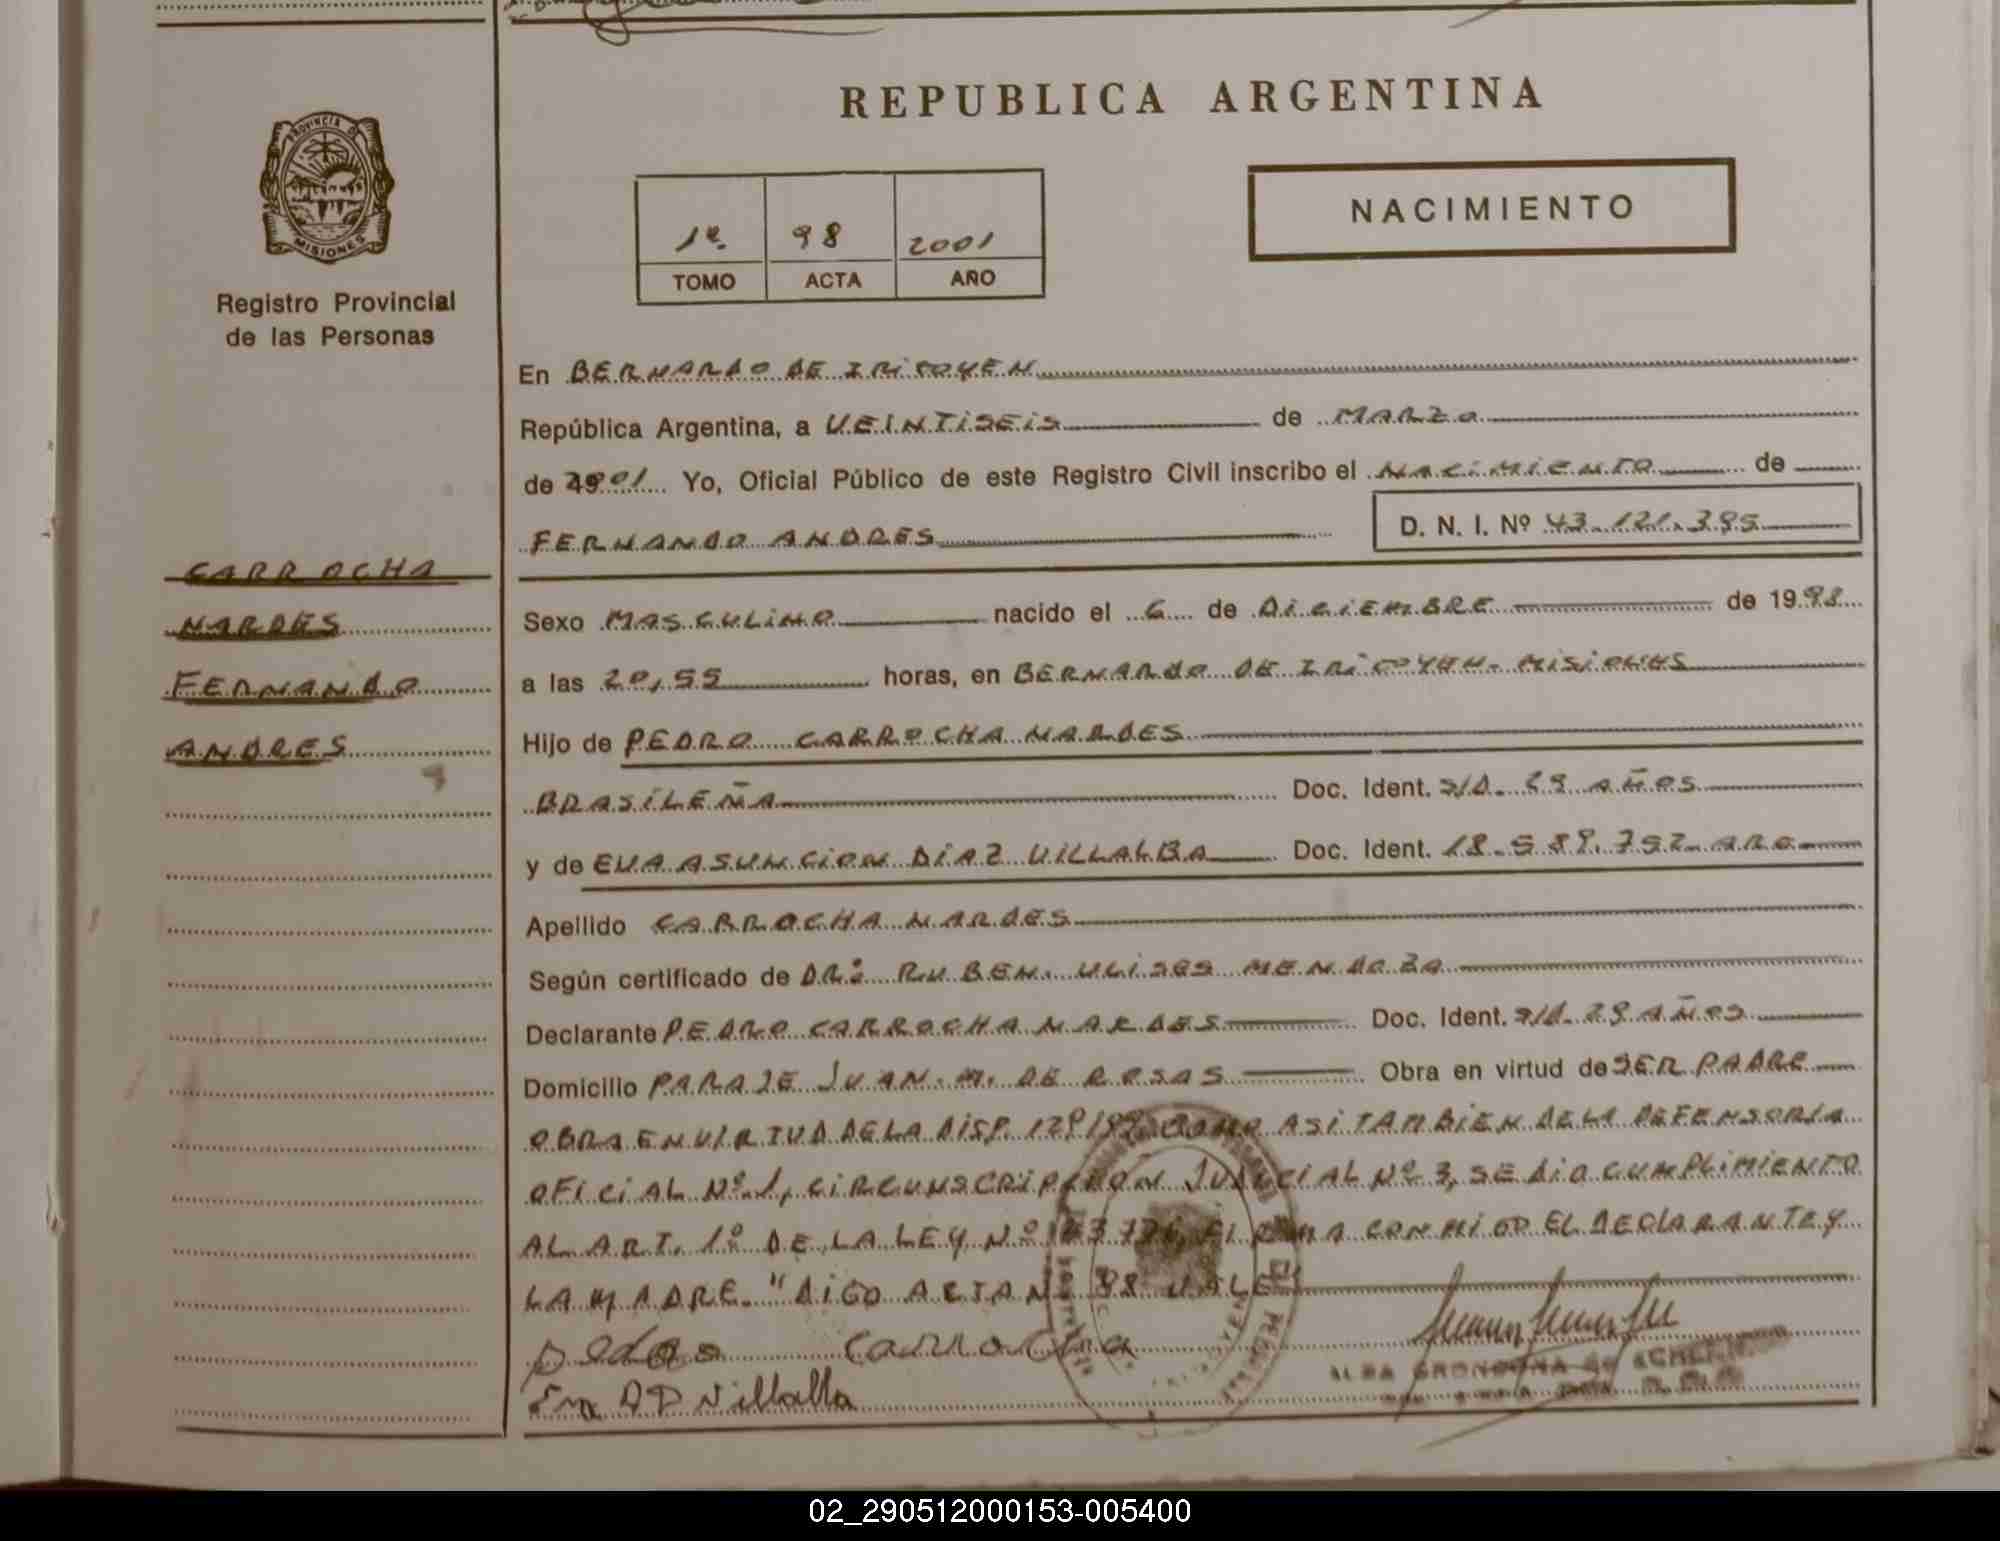 REPUBLICA ARGENTINA
PROVINCIA DE
MISIONES
Registro Provincial
de las Personas
1º. 98 2001
TOMO ACTA AÑO
NACIMIENTO
En BERNARDO DE IRIGOYEN
República Argentina, a VEINTISEIS de MARZO
de 2001 Yo, Oficial Público de este Registro Civil inscribo el NACIMIENTO de
FERNANDO ANDRES D. N. I. Nº 43.121.395
CARROCHA
NARDES
FERNANDO
ANDRES
Sexo MASCULINO nacido el 6 de DICIEMBRE de 1998
a las 20,55 horas, en BERNARDO DE IRIGOYEN. MISIONES
Hijo de PEDRO CARROCHA NARDES
BRASILEÑA Doc. Ident. S/D. 29 AÑOS
y de EVA ASUNCION DIAZ VILLALBA Doc. Ident. 18.589.752 ARG
Apellido CARROCHA NARDES
Según certificado de DR: RUBEN. ULISES MENDOZA
Declarante PEDRO CARROCHA NARDES Doc. Ident. S/D. 29 AÑOS
Domicilio PARAJE JUAN. M. DE ROSAS Obra en virtud de SER PADRE
OBRA EN VIRTUD DE LA DISP. COMO ASI TAMBIEN DE LA DEFENSORIA
OFICIAL Nº 1, CIRCUNSCRIPCION JUDICIAL Nº 3, SE DIO CUMPLIMIENTO
AL ART. 1º DE LA LEY Nº FIRMA CONMIGO EL DECLARANTE Y
LA MADRE. "DIGO ACTA Nº 98 VALE
Pedro Carrocha
Villalba
ALBA